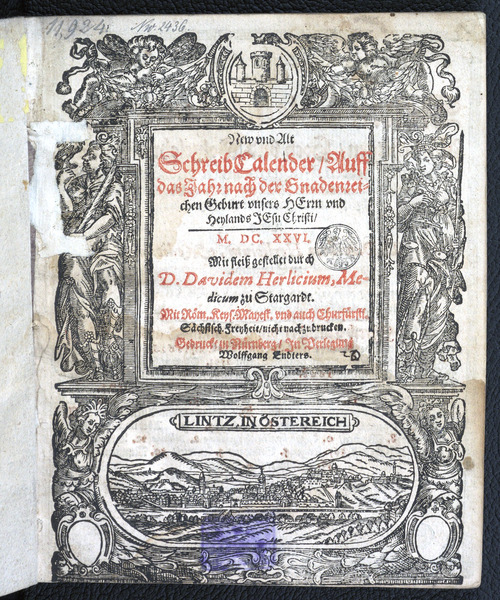 11,924.
Nw. 2436
New vnd Alt
Schreib Calender / Auff
das Jahr nach der Gnadenrei-
chen Geburt vnsers HErrn vnd
Heylands JEsu Christi /
M. DC. XXVI.
Mit fleiß gestellet durch
D. Davidem Herlicium, Me-
dicum zu Stargardt.
Mit Röm. Keys. Mayest. vnd auch Churfürstl.
Sächsisch. Freyheit / nicht nachzudrucken.
Gedruckt in Nürnberg / In Verlegung
Wolffgang Endters.
LINTZ, IN ÖSTEREICH